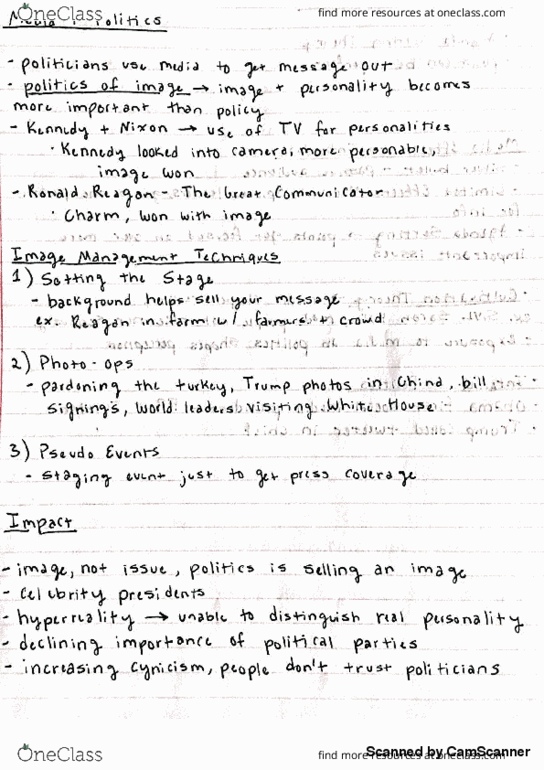 OneClass
find more resources at oneclass.com
Media + Politics
- politicians use media to get message out
- politics of image → image + personality becomes
more important than policy
- Kennedy + Nixon → use of TV for personalities
· Kennedy looked into camera, more personable,
image won
- Ronald Reagan - The Great Communicator
· Charm, won with image
Image Management Techniques
1) Setting the Stage
- background helps sell your message
ex. Reagan in farm w/ farmers + crowd
2) Photo-ops
- pardoning the turkey, Trump photos in China, bill
signings, world leaders visiting White House
3) Pseudo Events
- staging event just to get press coverage
Impact
- image, not issue, politics is selling an image
- Celubrity presidents
- hyperreality → unable to distinguish real personality
- declining importance of political parties
- increasing cynicism, people don't trust politicians
OneClass
find more resources at oneclass.com
Scanned by CamScanner